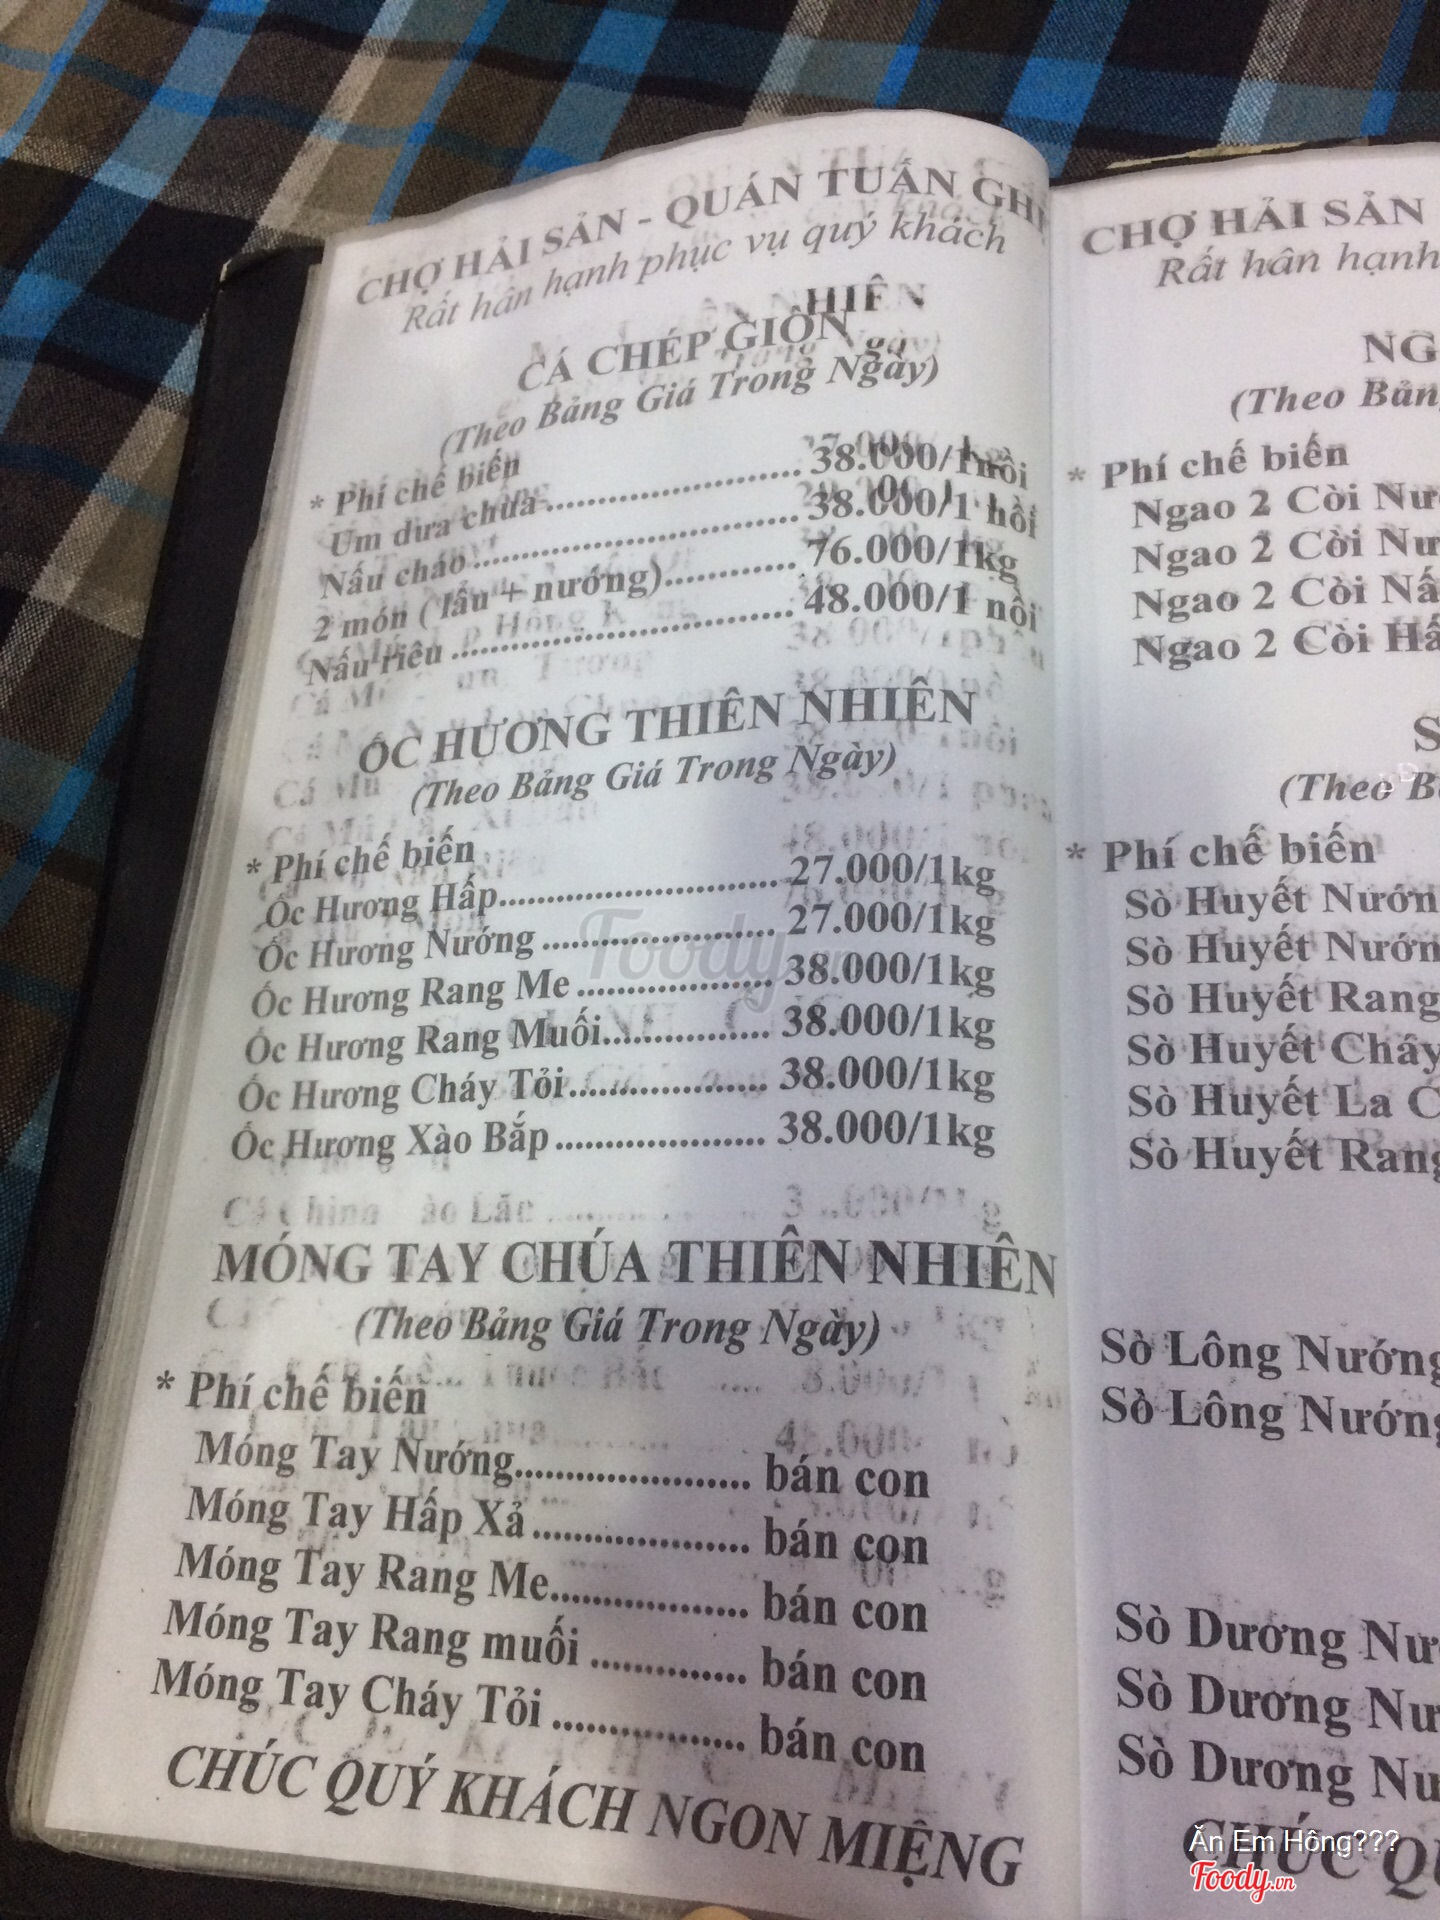 CHỢ HẢI SẢN - QUÁN TUẤN GH
Rất hân hạnh phục vụ quý khách
CÁ CHÉP GIÒN
(Theo Bảng Giá Trong Ngày)
* Phí chế biến
Um dưa chua ........ 38.000/1nồi
Nấu cháo ........ 38.000/1 nồi
2 món ( lẩu + nướng) ........ 76.000/1kg
Nấu riêu ........ 48.000/1 nồi
ỐC HƯƠNG THIÊN NHIÊN
(Theo Bảng Giá Trong Ngày)
* Phí chế biến
Ốc Hương Hấp ........ 27.000/1kg
Ốc Hương Nướng ........ 27.000/1kg
Ốc Hương Rang Me ........ 38.000/1kg
Ốc Hương Rang Muối ........ 38.000/1kg
Ốc Hương Cháy Tỏi ........ 38.000/1kg
Ốc Hương Xào Bắp ........ 38.000/1kg
MÓNG TAY CHÚA THIÊN NHIÊN
(Theo Bảng Giá Trong Ngày)
* Phí chế biến
Móng Tay Nướng ........ bán con
Móng Tay Hấp Xả ........ bán con
Móng Tay Rang Me ........ bán con
Móng Tay Rang muối ........ bán con
Móng Tay Cháy Tỏi ........ bán con
CHÚC QUÝ KHÁCH NGON MIỆNG
CHỢ HẢI SẢN
Rất hân hạnh
NG
(Theo Bản
* Phí chế biến
Ngao 2 Còi Nư
Ngao 2 Còi Nư
Ngao 2 Còi Nấ
Ngao 2 Còi Hấ
S
(Theo B
* Phí chế biến
Sò Huyết Nướn
Sò Huyết Nướn
Sò Huyết Rang
Sò Huyết Cháy
Sò Huyết La
Sò Huyết Rang
Sò Lông Nướng
Sò Lông Nướng
Sò Dương Nư
Sò Dương Nư
Sò Dương Nư
CHÚC QU
Ăn Em Hông???
Foody.vn
Foody.vn